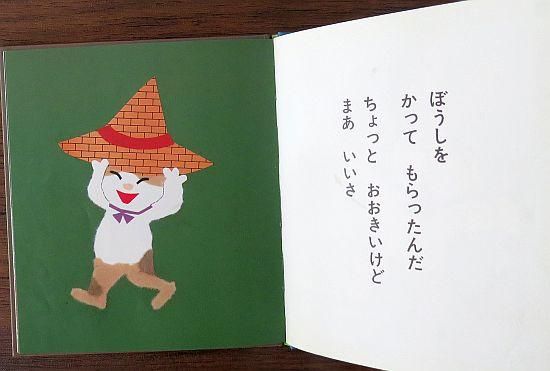 ぼうしを
かって　もらったんだ
ちょっと　おおきいけど
まあ　いいさ